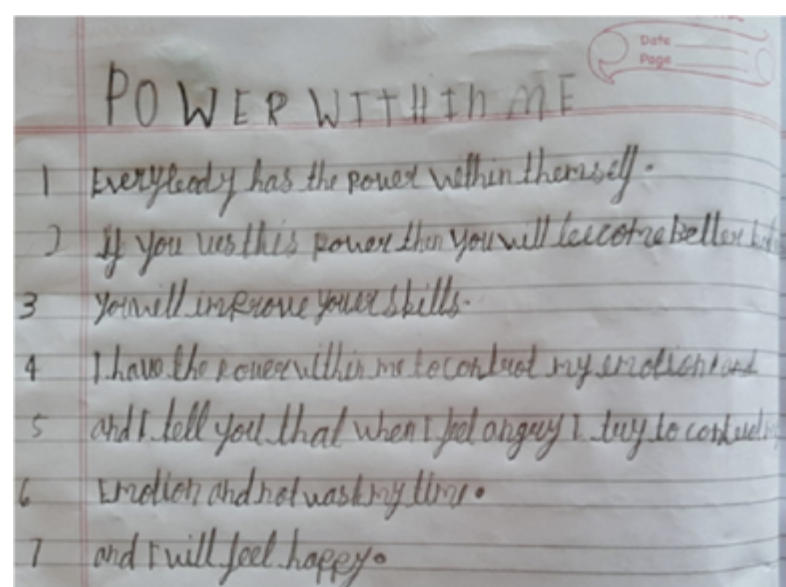 Date
Page
POWER WITHIN ME
1 Everybody has the power within themself.
2 If you ues this power then you will become better
3 you will improve your skills.
4 I have the power within me to control my emotion and
5 and I tell you that when I feel angry I try to control
6 Emotion and not wast my time.
7 and I will feel happy.